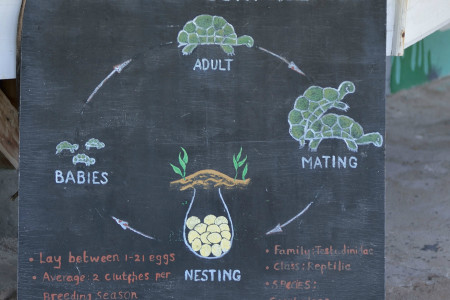 ADULT
MATING
BABIES
NESTING
• Lay between 1-21 eggs
• Average: 2 clutches per
Breeding Season
• Family: Testudinidae
• Class: Reptilia
• Species: